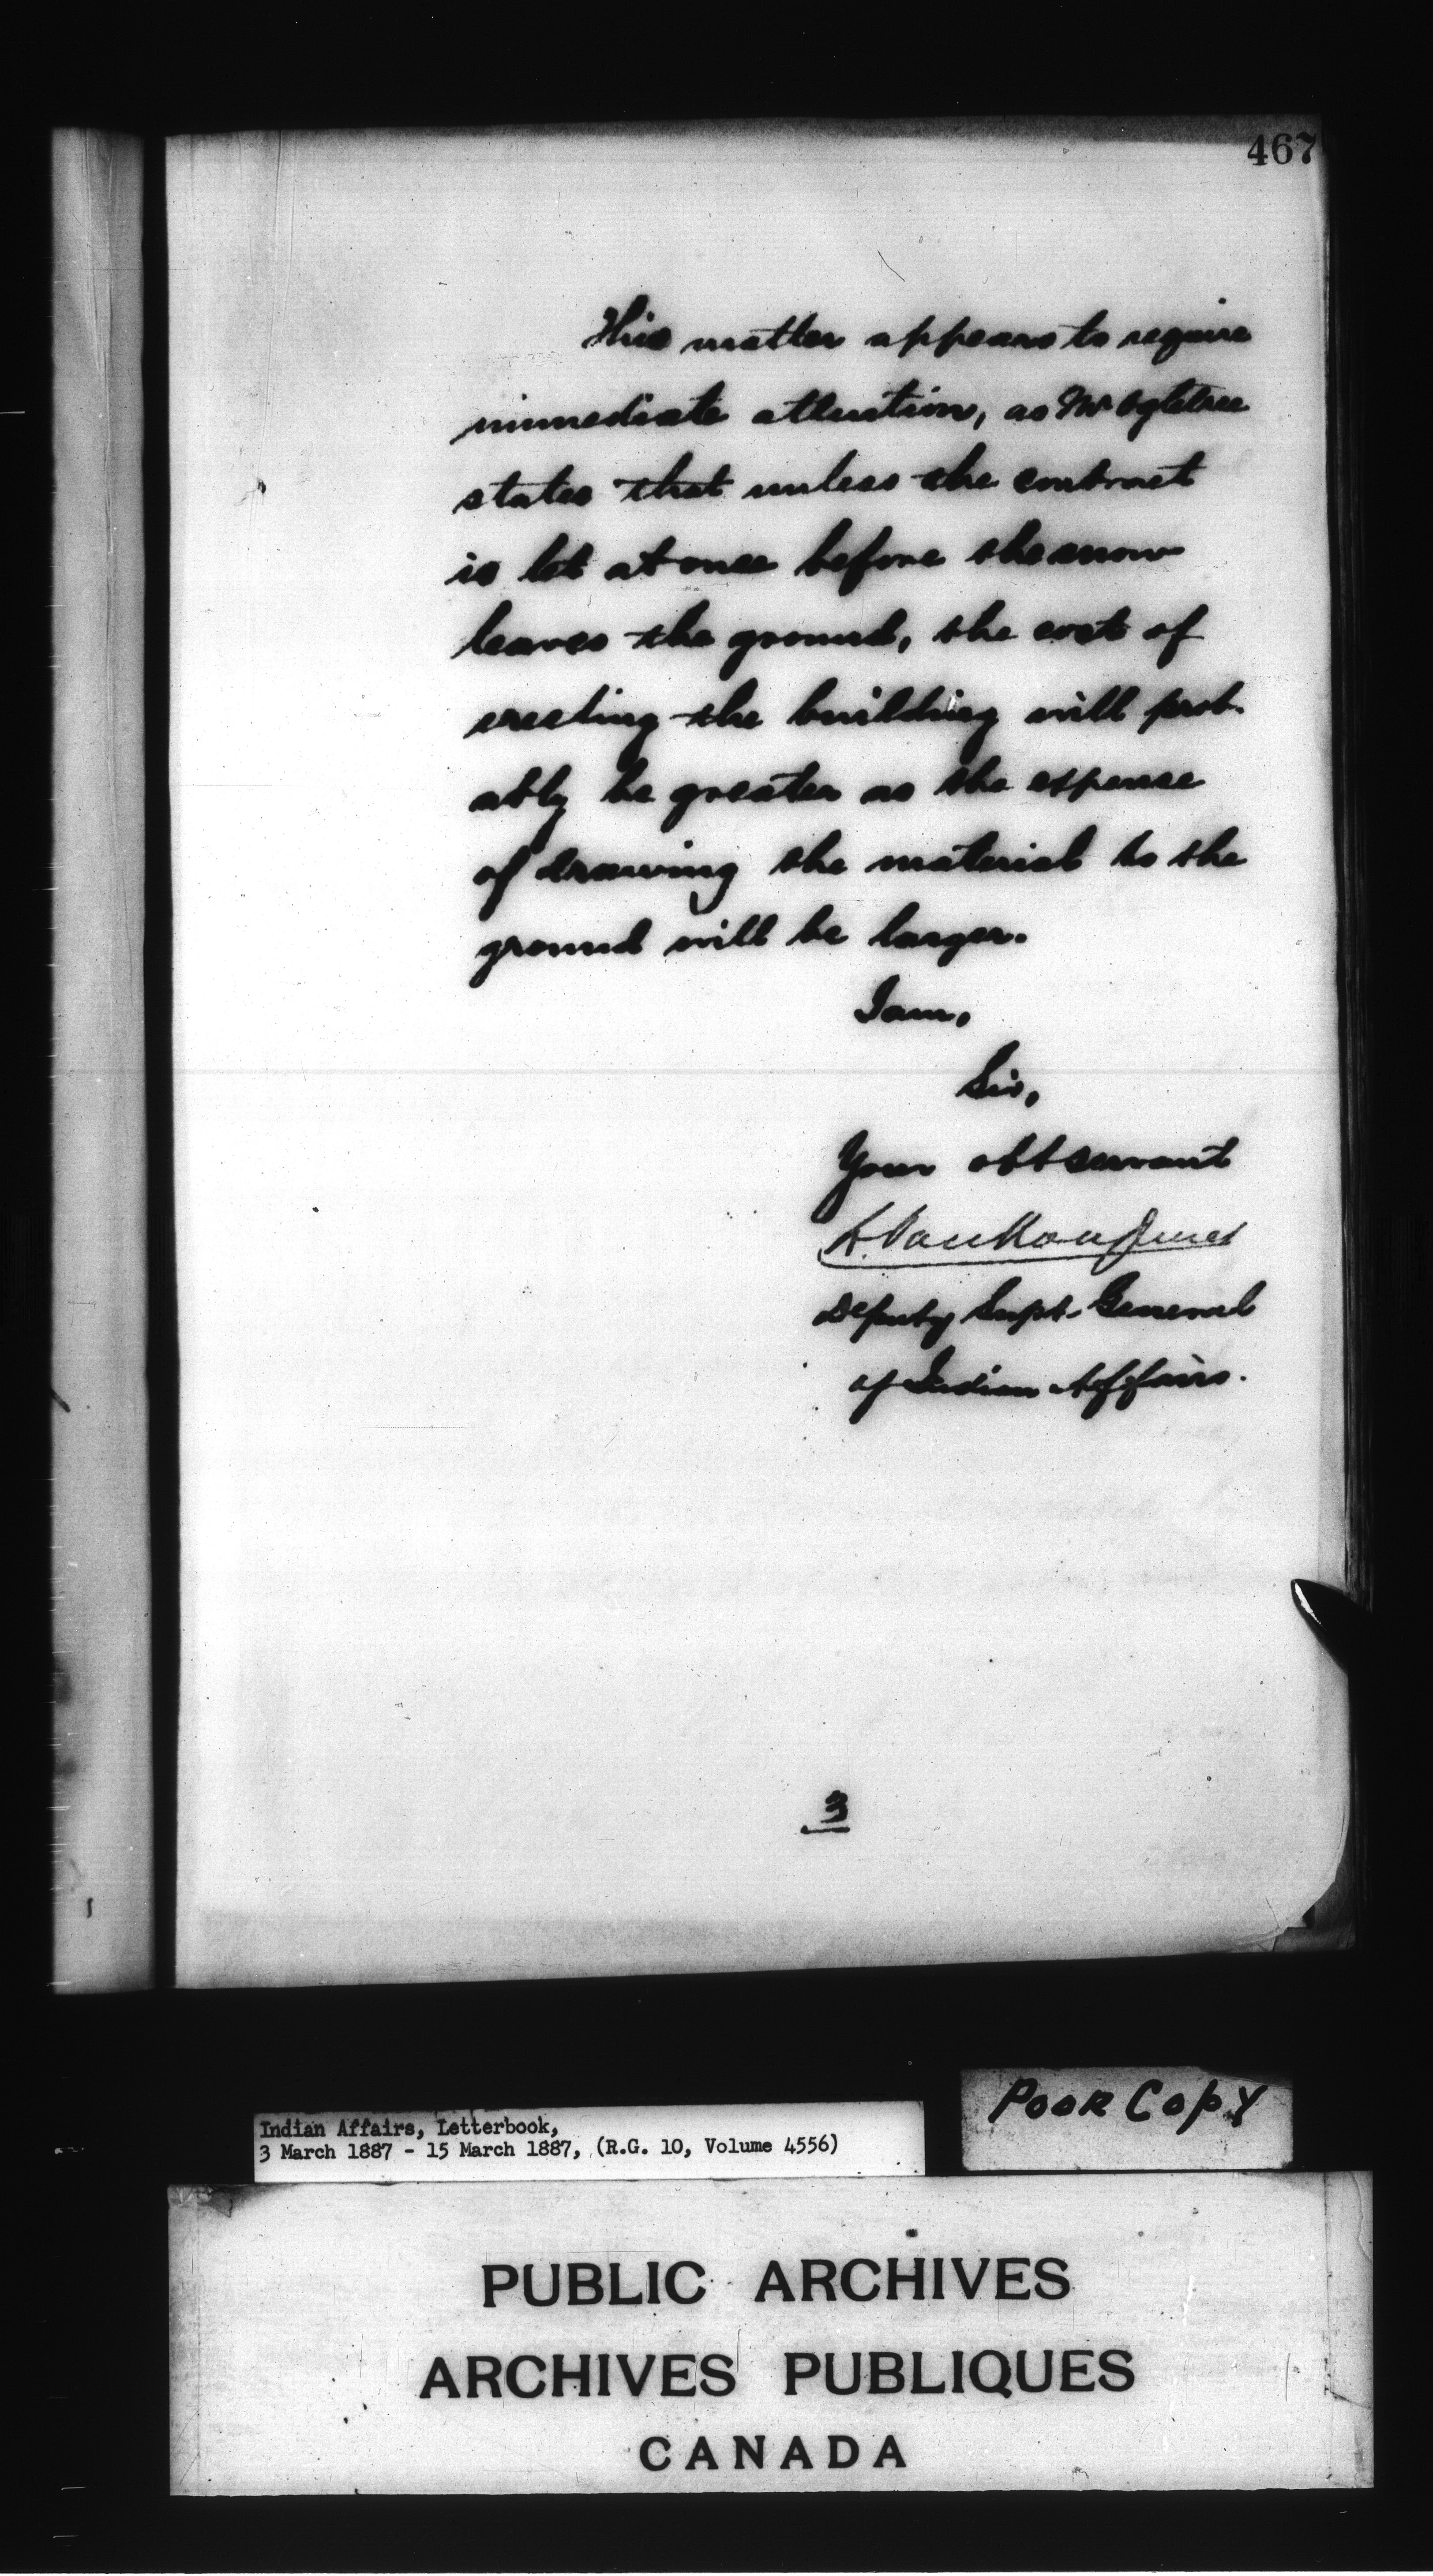 467
This matter appears to require
immediate attention, as Mr Ogletree
states that unless the contract
is let at once before the snow
leaves the ground, the cost of
erecting the building will prob-
ably be greater as the expense
of drawing the material to the
ground will be larger.
I am,
Sir,
Your obt servant
L. VanKoughnet
Deputy Supt. General
of Indian Affairs.
3
POOR COPY
Indian Affairs, Letterbook,
3 March 1887 - 15 March 1887, (R.G. 10, Volume 4556)
PUBLIC ARCHIVES
ARCHIVES PUBLIQUES
CANADA